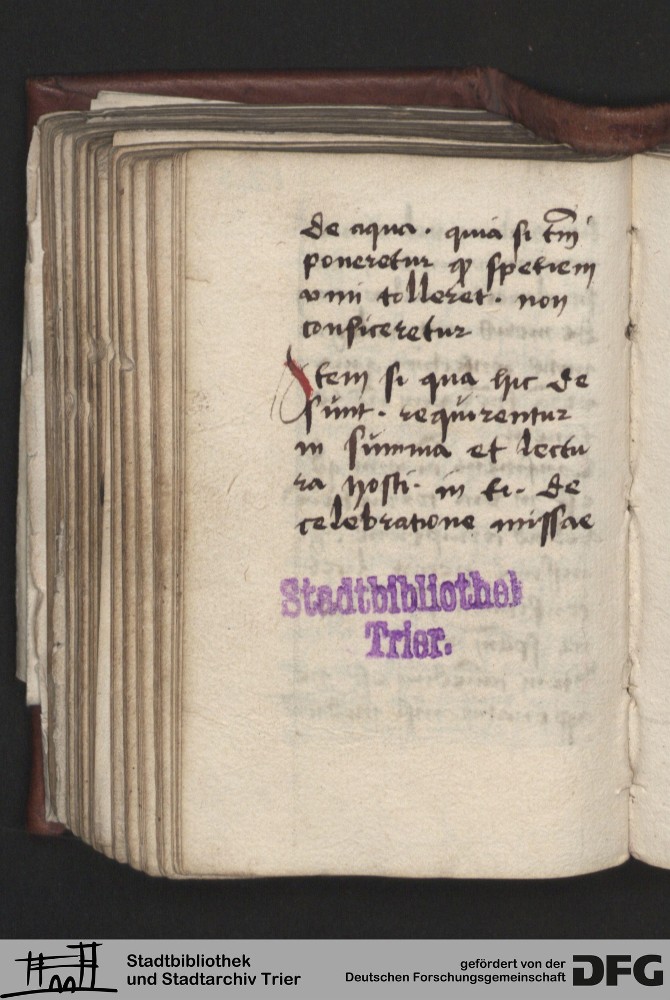 de aqua . quia si tm̄
poneretur ꝙ spetiem
vini tolleret . non
conficeretur
Item si qua hic de
sunt . requirentur
in summa et lectu
ra hosti . in ti . de
celebratione missae
Stadtbibliothek
Trier.
Stadtbibliothek
und Stadtarchiv Trier
gefördert von der
Deutschen Forschungsgemeinschaft
DFG